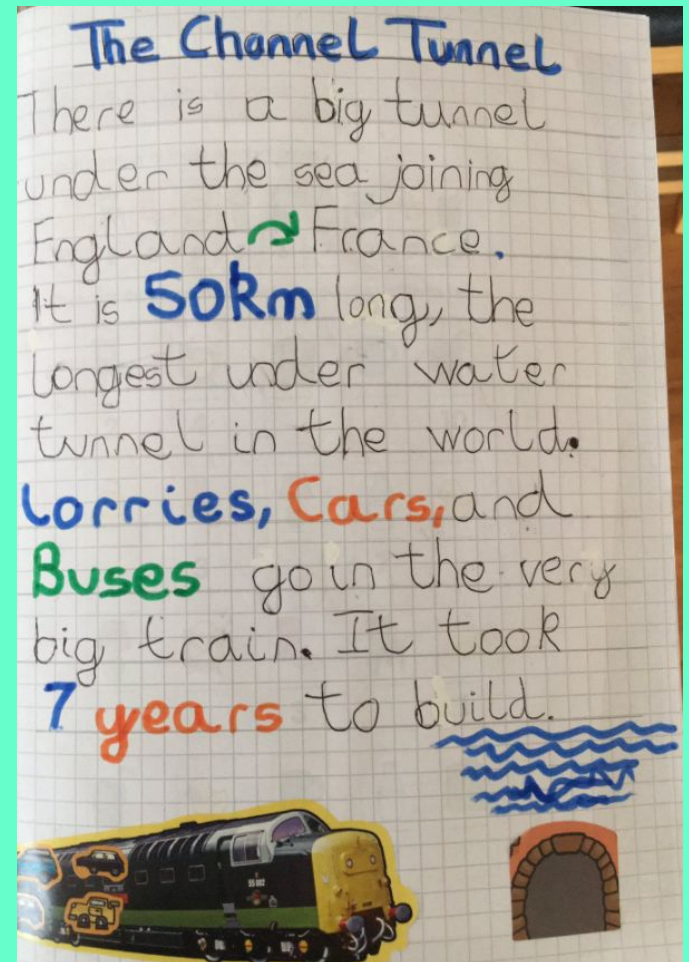 The Channel Tunnel
There is a big tunnel
under the sea joining
England France.
It is 50km long, the
longest under water
tunnel in the world.
Lorries, Cars, and
Buses go in the very
big train. It took
7 years to build.